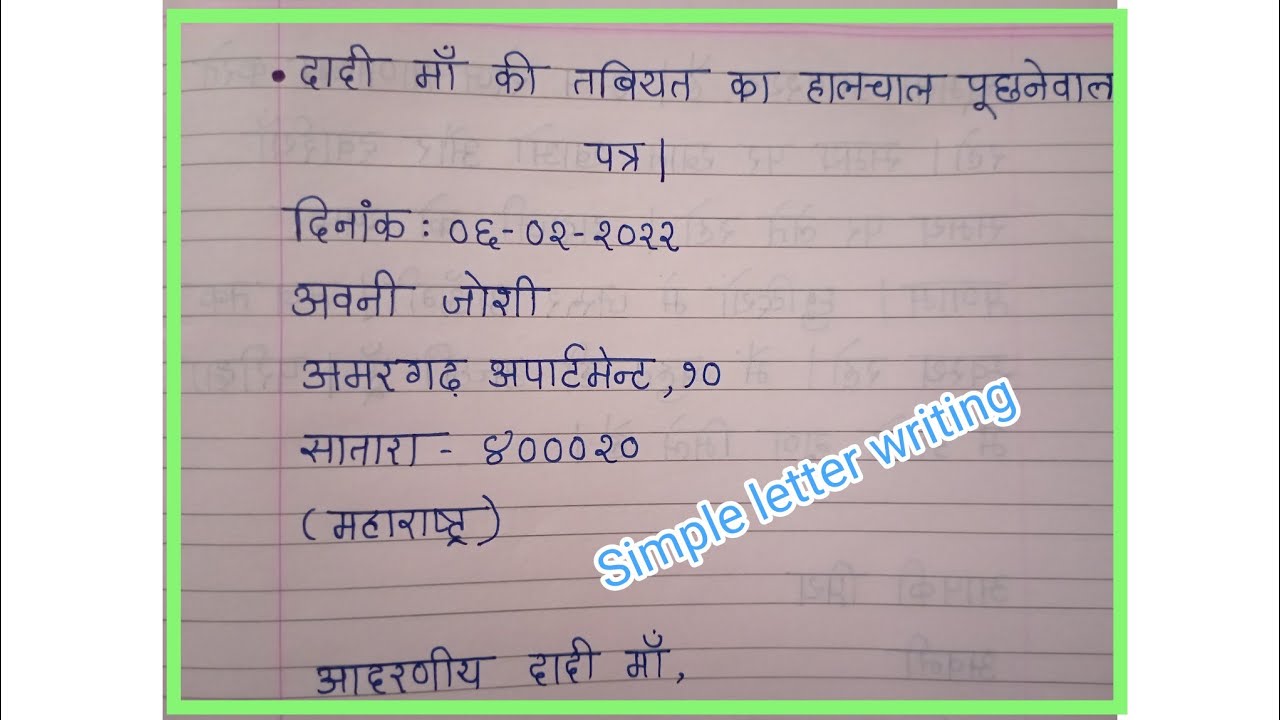 • दादी माँ की तबियत का हालचाल पूछनेवाल
पत्र |
दिनांक : ०६-०२-२०२२
अवनी जोशी
अमरगढ़ अपार्टमेन्ट, १०
सातारा - ४०००२०
(महाराष्ट्र)
Simple letter writing
आदरणीय दादी माँ,